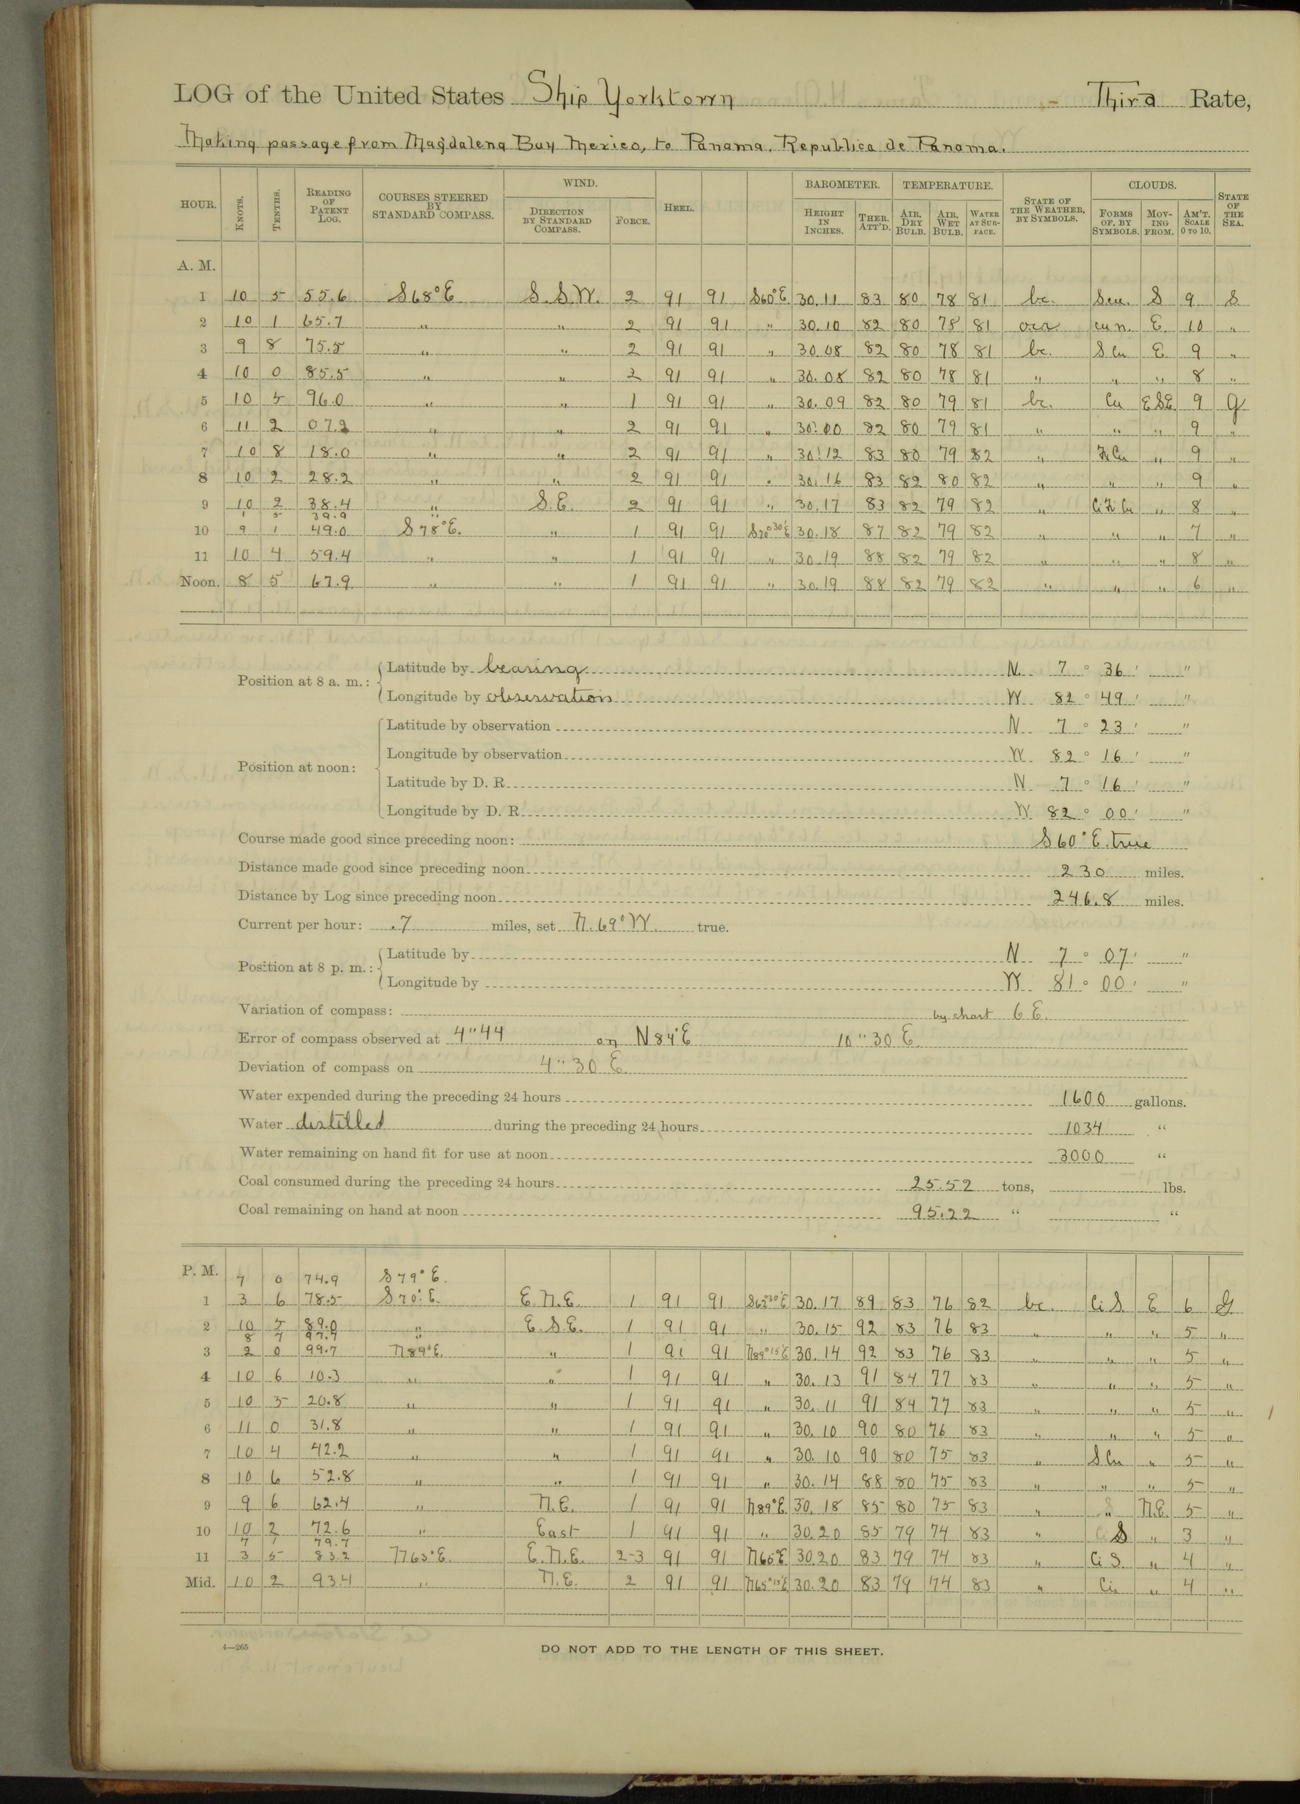 LOG of the United States Ship Yorktown - Third Rate,
Making passage from Magdalena Bay Mexico, to Panama, Republica de Panama.
HOUR. KNOTS. TENTHS. READING OF PATENT LOG. COURSES STEERED BY STANDARD COMPASS. WIND. DIRECTION BY STANDARD COMPASS. FORCE. HEEL. BAROMETER. HEIGHT IN INCHES. THER. ATT'D. TEMPERATURE. AIR, DRY BULB. AIR, WET BULB. WATER AT SURFACE. STATE OF THE WEATHER, BY SYMBOLS. CLOUDS. FORMS OF, BY SYMBOLS. MOVING FROM. AM'T. SCALE 0 TO 10. STATE OF THE SEA.
A. M.
1 10 5 55.6 S68°E S.S.W. 2 91 91 S60°E 30.11 83 80 78 81 bc. Scu. S 9 S
2 10 1 65.7 " " 2 91 91 " 30.10 82 80 78 81 ocr cu n. E. 10 "
3 9 8 75.5 " " 2 91 91 " 30.08 82 80 78 81 bc. S Cu E. 9 "
4 10 0 85.5 " " 2 91 91 " 30.08 82 80 78 81 " " " 8 "
5 10 5 96.0 " " 1 91 91 " 30.09 82 80 79 81 bc. Cu ESE 9 G
6 11 2 07.2 " " 2 91 91 " 30.00 82 80 79 81 " " " 9 "
7 10 8 18.0 " " 2 91 91 " 30.12 83 80 79 82 " Fr Cu " 9 "
8 10 2 28.2 " " 2 91 91 " 30.16 83 82 80 82 " " " 9 "
9 10 2 38.4 " S.E. 2 91 91 " 30.17 83 82 79 82 " Ci Fr Cu " 8 "
1 5 39.9 "
10 9 1 49.0 S78°E. " 1 91 91 S70°30'E 30.18 87 82 79 82 " " " 7 "
11 10 4 59.4 " " 1 91 91 " 30.19 88 82 79 82 " " " 8 "
Noon. 8 5 67.9 " " 1 91 91 " 30.19 88 82 79 82 " " " 6 "
Position at 8 a. m.: Latitude by bearing N. 7 ° 36 ' "
Longitude by observation W 82 ° 49 ' "
Position at noon: Latitude by observation N 7 ° 23 ' "
Longitude by observation W 82 ° 16 ' "
Latitude by D. R. N 7 ° 16 ' "
Longitude by D. R. W 82 ° 00 ' "
Course made good since preceding noon: S 60° E. true
Distance made good since preceding noon 230 miles.
Distance by Log since preceding noon 246.8 miles.
Current per hour: .7 miles, set N. 69° W. true.
Position at 8 p. m.: Latitude by N 7 ° 07 ' "
Longitude by W 81 ° 00 ' "
Variation of compass: by chart 6 E.
Error of compass observed at 4" 44 on N 84°E 10" 30 E
Deviation of compass on 4" 30 E
Water expended during the preceding 24 hours 1600 gallons.
Water distilled during the preceding 24 hours 1034 "
Water remaining on hand fit for use at noon 3000 "
Coal consumed during the preceding 24 hours 25.52 tons, lbs.
Coal remaining on hand at noon 95.22 " "
P. M. 7 0 74.9 S 79° E.
1 3 6 78.5 S 70° E. E.N.E. 1 91 91 30.17 89 83 76 82 bc. Ci S. E 6 G
2 10 5 89.0 " E.S.E. 1 91 91 " 30.15 92 83 76 83 " " " 5 "
8 7 97.7 "
3 2 0 99.7 N89°E " 1 91 91 N89°15'E 30.14 92 83 76 83 " " " 5 "
4 10 6 10.3 " " 1 91 91 " 30.13 91 84 77 83 " " " 5 "
5 10 5 20.8 " " 1 91 91 " 30.11 91 84 77 83 " " " 5 "
6 11 0 31.8 " " 1 91 91 " 30.10 90 80 76 83 " " " 5 "
7 10 4 42.2 " " 1 91 91 " 30.10 90 80 75 83 " S Cu " 5 "
8 10 6 52.8 " " 1 91 91 " 30.14 88 80 75 83 " " " 5 "
9 9 6 62.4 " N.E. 1 91 91 N89°E 30.18 85 80 75 83 " " N.E. 5 "
10 10 2 72.6 " East 1 91 91 " 30.20 85 79 74 83 " S " 3 "
7 1 79.7
11 3 5 83.2 N63°E. E.N.E. 2-3 91 91 N60°E 30.20 83 79 74 83 " Ci S. " 4 "
Mid. 10 2 93.4 " N.E. 2 91 91 N65°15'E 30.20 83 79 74 83 " Ci. " 4 "
4—265
DO NOT ADD TO THE LENGTH OF THIS SHEET.